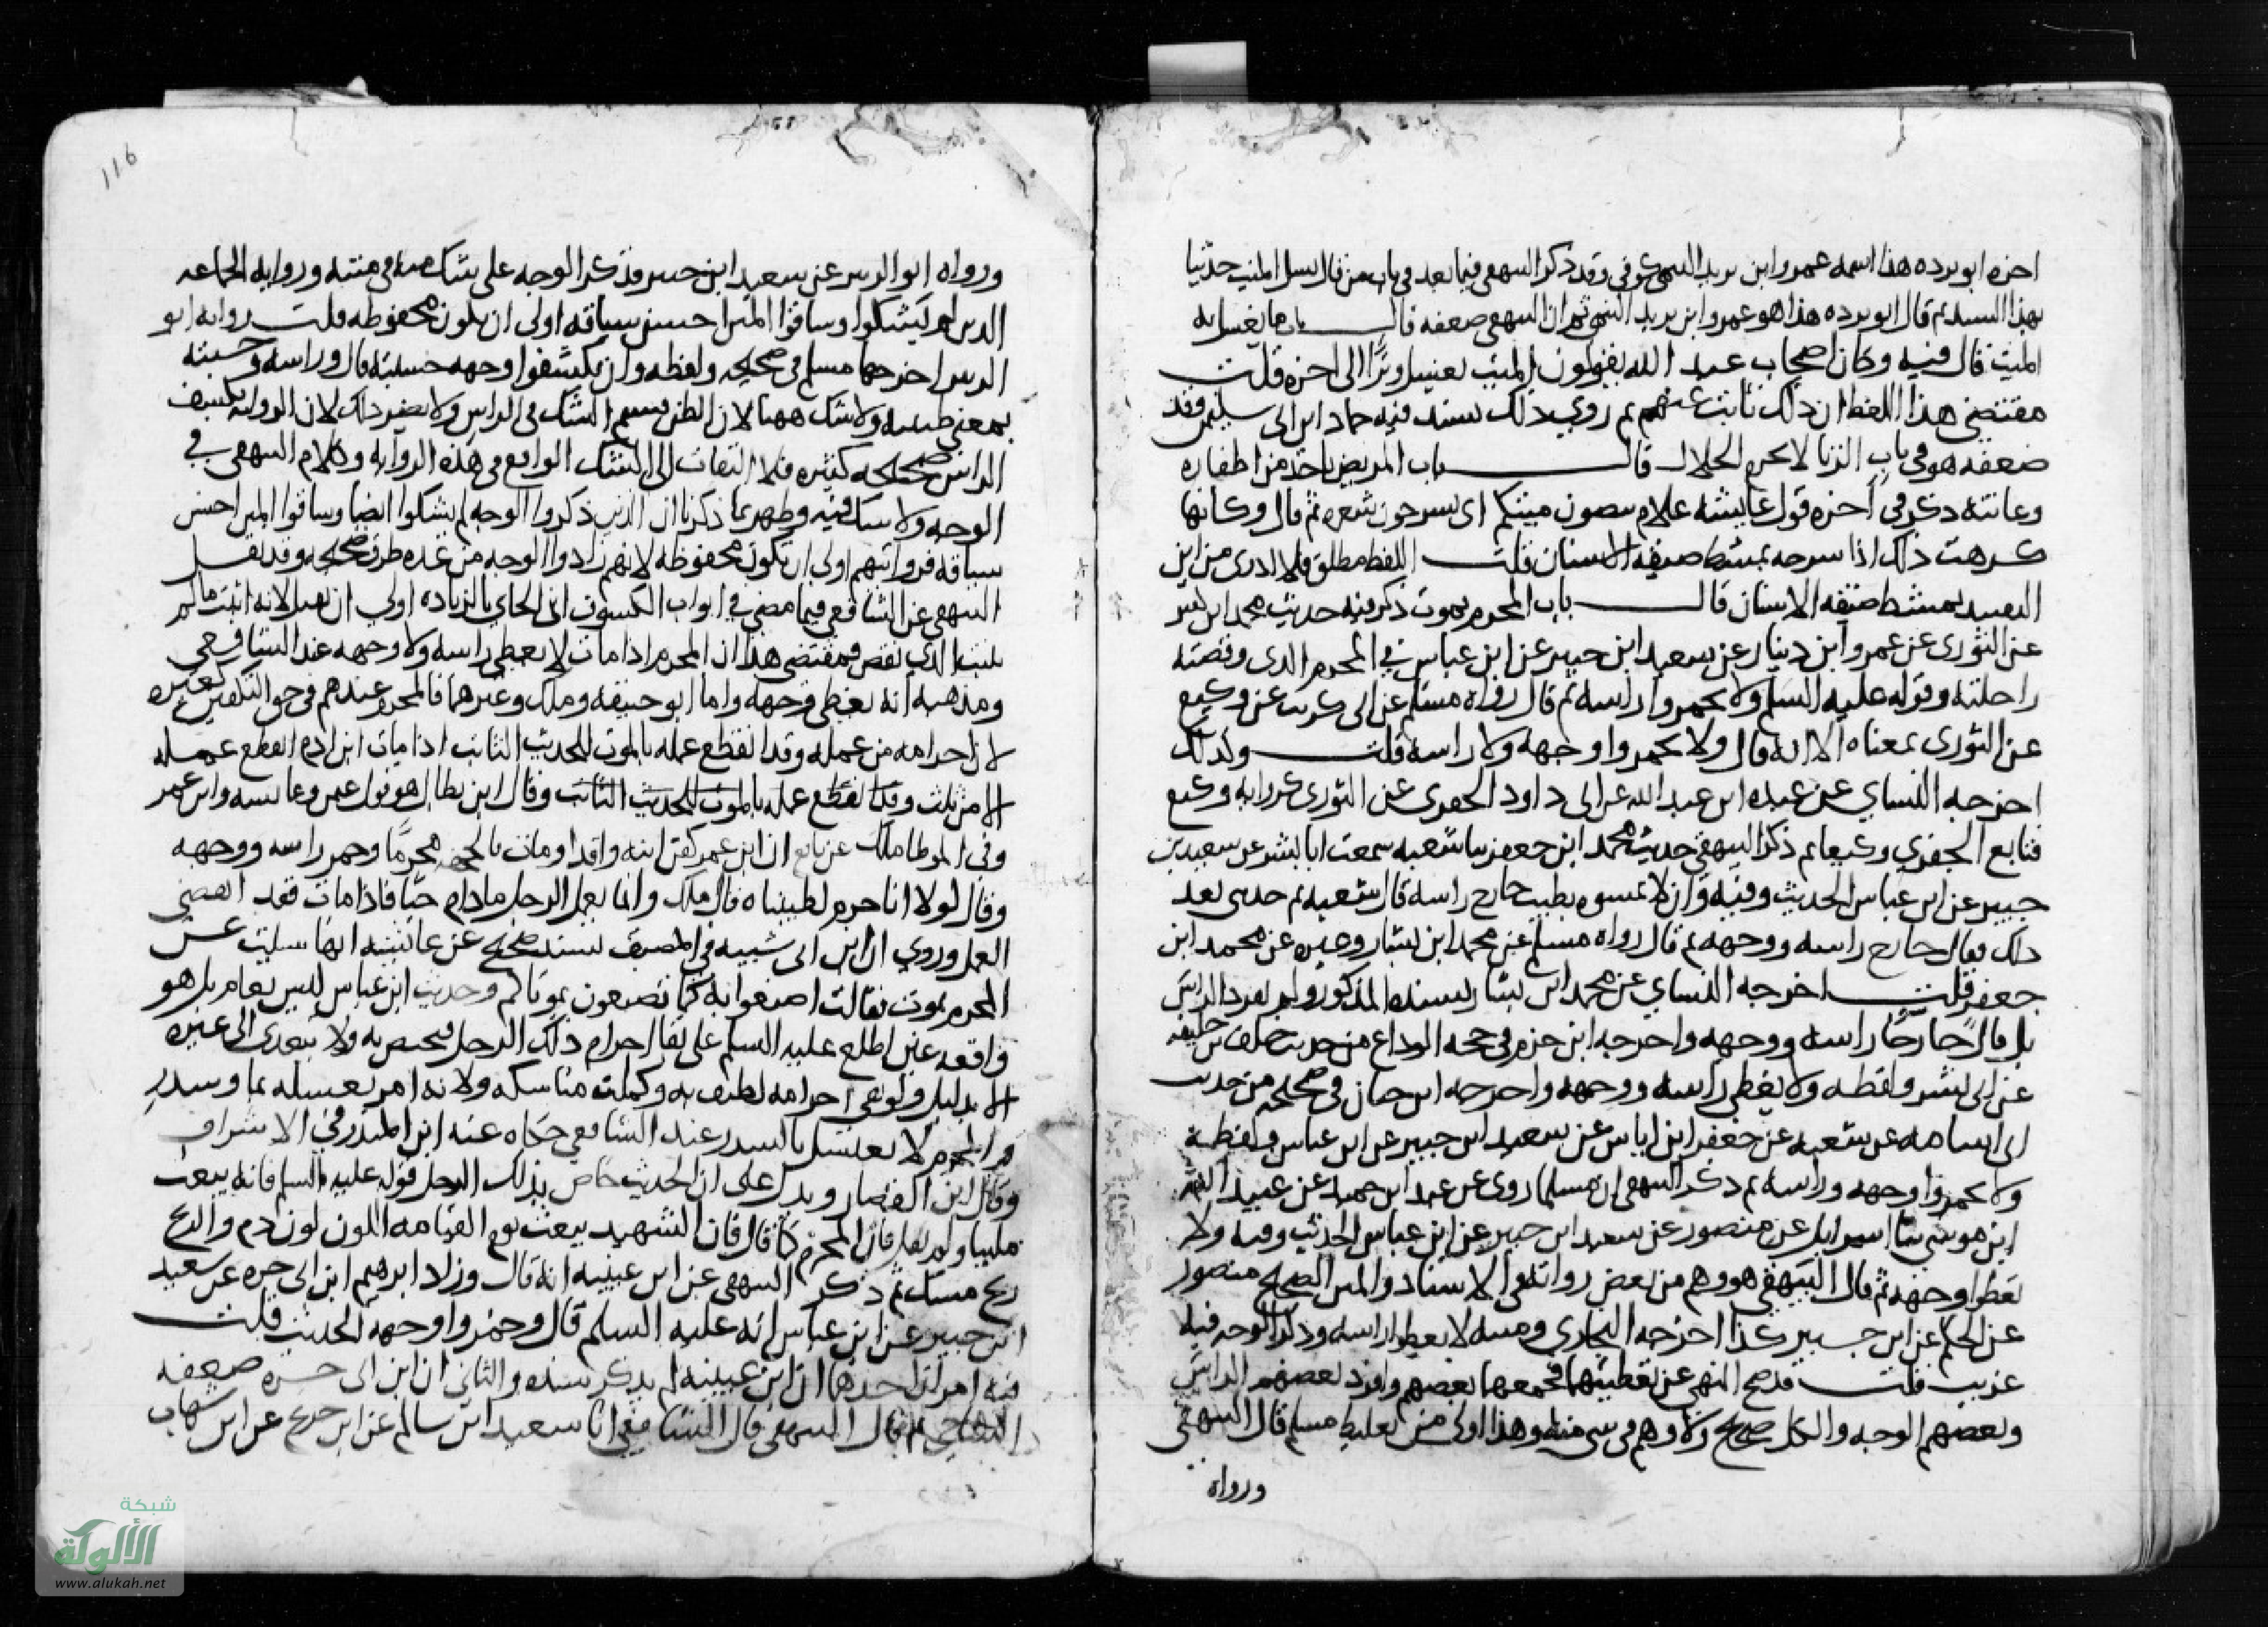 اخره ابو برده هذا اسمه عمرو ابن يزيد التيمي كوفي وقد ذكر البيهقي فيما بعد في باب من قال يسل الميت حديثا
بهذا السند ثم قال ابو برده هذا هو عمرو ابن يزيد التيمي ثم ان البيهقي ضعفه قال باب ما يغسل به
الميت قال فيه وكان اصحاب عبد الله يقولون الميت يغسل وترا الى اخره قلت
مقتضى هذا اللفظ ان ذلك ثابت عنهم ثم روي ذلك بسند فيه حماد ابن ابي سليمن وقد
ضعفه هو في باب الزنا لا يحرم الحلال قال باب المريض ياخذ من اظفاره
وعانته ذكر في اخره قول عايشة علام تنصون ميتكم اي تسرحون شعره ثم قال وكانها
كرهت ذلك اذا سرحه بمشط ضيقه الاسنان قلت اللفظ مطلق فلا ادري من اين
التقييد بمشط ضيقه الاسنان قال باب المحرم يموت ذكر فيه حديث محمد ابن كثير
عن الثوري عن عمرو ابن دينار عن سعيد ابن جبير عن ابن عباس في المحرم الذي وقصته
راحلته وقوله عليه السلم ولا تخمروا راسه ثم قال رواه مسلم عن ابي كريب عن وكيع
عن الثوري بمعناه الا انه قال ولا تخمروا وجهه ولا راسه قلت وكذلك
اخرجه النساي عن عبده ابن عبد الله عن ابي داود الحفري عن الثوري كرواية وكيع
فتابع الحفري وكيعا ثم ذكر البيهقي حديث محمد ابن جعفر ثنا شعبه سمعت ابا بشر عن سعيد بن
جبير عن ابن عباس الحديث وفيه وان لا تمسوه بطيب خارج راسه قال شعبه ثم حدثني بعد
ذلك فقال خارج راسه ووجهه ثم قال رواه مسلم عن محمد ابن بشار وغيره عن محمد ابن
جعفر قلت اخرجه النساي عن محمد ابن بشار بسنده المذكور ولم يفرد الراس
بل قال خارجا راسه ووجهه واخرجه ابن حزم في حجه الوداع من حديث خلف بن خليفه
عن ابي بشر ولفظه ولا يغطى راسه ووجهه واخرجه ابن حبان في صحيحه من حديث
ابي اسامه عن شعبه عن جعفر ابن اياس عن سعيد ابن جبير عن ابن عباس ولفظه
ولا تخمروا وجهه وراسه ثم ذكر البيهقي ان مسلما روى عن عبد ابن حميد عن عبيد الله
ابن موسى ثنا اسرايل عن منصور عن سعيد ابن جبير عن ابن عباس الحديث وفيه ولا
تغطوا وجهه ثم قال البيهقي هو وهم من بعض رواته في الاسناد والمتن الصحيح منصور
عن الحكم عن ابن جبير كذا اخرجه البخاري ومتنه لا تغطوا راسه وذكر الوجه فيه
غريب قلت قد صح النهي عن تغطيتهما فجمعهما بعضهم وافرد بعضهم الراس
وبعضهم الوجه والكل صحيح ولا وهم في شي منه وهذا اولى من تغليط مسلم قال البيهقي
ورواه
116
ورواه ابو الزبير عن سعيد ابن جبير فذكر الوجه على شك منه في متنه ورواية الجماعه
الذين لم يشكوا وساقوا المتن احسن سياقه اولى ان تكون محفوظه قلت روايه ابو
الزبير اخرجها مسلم في صحيحه ولفظه وان يكشفوا وجهه حسبته قال وراسه وحسبته
بمعنى ظننته ولا شك ههنا لان الظن قسيم الشك في الراس ولا يضر ذلك لان الروايه بكشف
الراس صحيحه كثيره فلا التفات الى الشك الواقع في هذه الروايه وكلام البيهقي في
الوجه ولا شك فيه وظهر بما ذكرنا ان الذين ذكروا الوجه لم يشكوا ايضا وساقوا المتن احسن
سياقه فروايتهم اولى ان تكون محفوظه لانهم زادوا الوجه من عده طرق صحيحه وقد نقل
البيهقي عن الشافعي فيما مضى في ابواب الكسوف ان الجاي بالزياده اولى ان يقبل لانه اثبت ما لم
يثبت الذي نقص فمقتضى هذا ان المحرم اذا مات لا يغطى راسه ولا وجهه عند الشافعي
ومذهبه انه يغطى وجهه واما ابو حنيفه وملك وغيرهما فالمحرم عندهم في حق التكفين كغيره
لان احرامه من عمله وقد انقطع عمله بالموت للحديث الثابت اذا مات ابن ادم انقطع عمله
الا من ثلث وقد انقطع عمله بالموت للحديث الثابت وقال ابن بطال هو قول عمر وعايشه وابن عمر
وفي الموطا ملك عن نافع ان ابن عمر كفن ابنه واقدا ومات بالجحفه محرما وخمر راسه ووجهه
وقال لولا انا حرم لطيبناه قال ملك وانما يعمل الرجل ما دام حيا فاذا مات فقد انقضى
العمل وروي ابن ابي شيبه في المصنف بسند صحيح عن عايشه انها سئلت عن
المحرم يموت فقالت اصنعوا به كما تصنعون بموتاكم وحديث ابن عباس ليس بعام بل هو
واقعه عين اطلع عليه السلم على بقا احرام ذلك الرجل فيختص به ولا يتعدى الى غيره
الا بدليل ولو بقي احرامه لطيف به وكملت مناسكه ولانه امر بغسله بما وسدر
والمحرم لا يغتسل بالسدر عند الشافعي حكاه عنه ابن المنذر في الاشراف
وقال ابن القصار ويدل على ان الحديث خاص بذلك الرجل قوله عليه السلم فانه يبعث
ملبيا ولم يقل فان المحرم كما قال فان الشهيد يبعث يوم القيامه اللون لون دم والريح
ريح مسك ثم ذكر البيهقي عن ابن عيينه انه قال وزاد ابرهيم ابن ابي حره عن سعيد
ابن جبير عن ابن عباس انه عليه السلم قال وخمروا وجهه الحديث قلت
فيه امران احدهما ان ابن عيينه لم يذكر سنده والثاني ان ابن ابي حره ضعفه
الساجي ثم قال البيهقي قال الشافعي انا سعيد ابن سالم عن ابن جريج عن ابن شهاب
شبكة
الألوكة
www.alukah.net